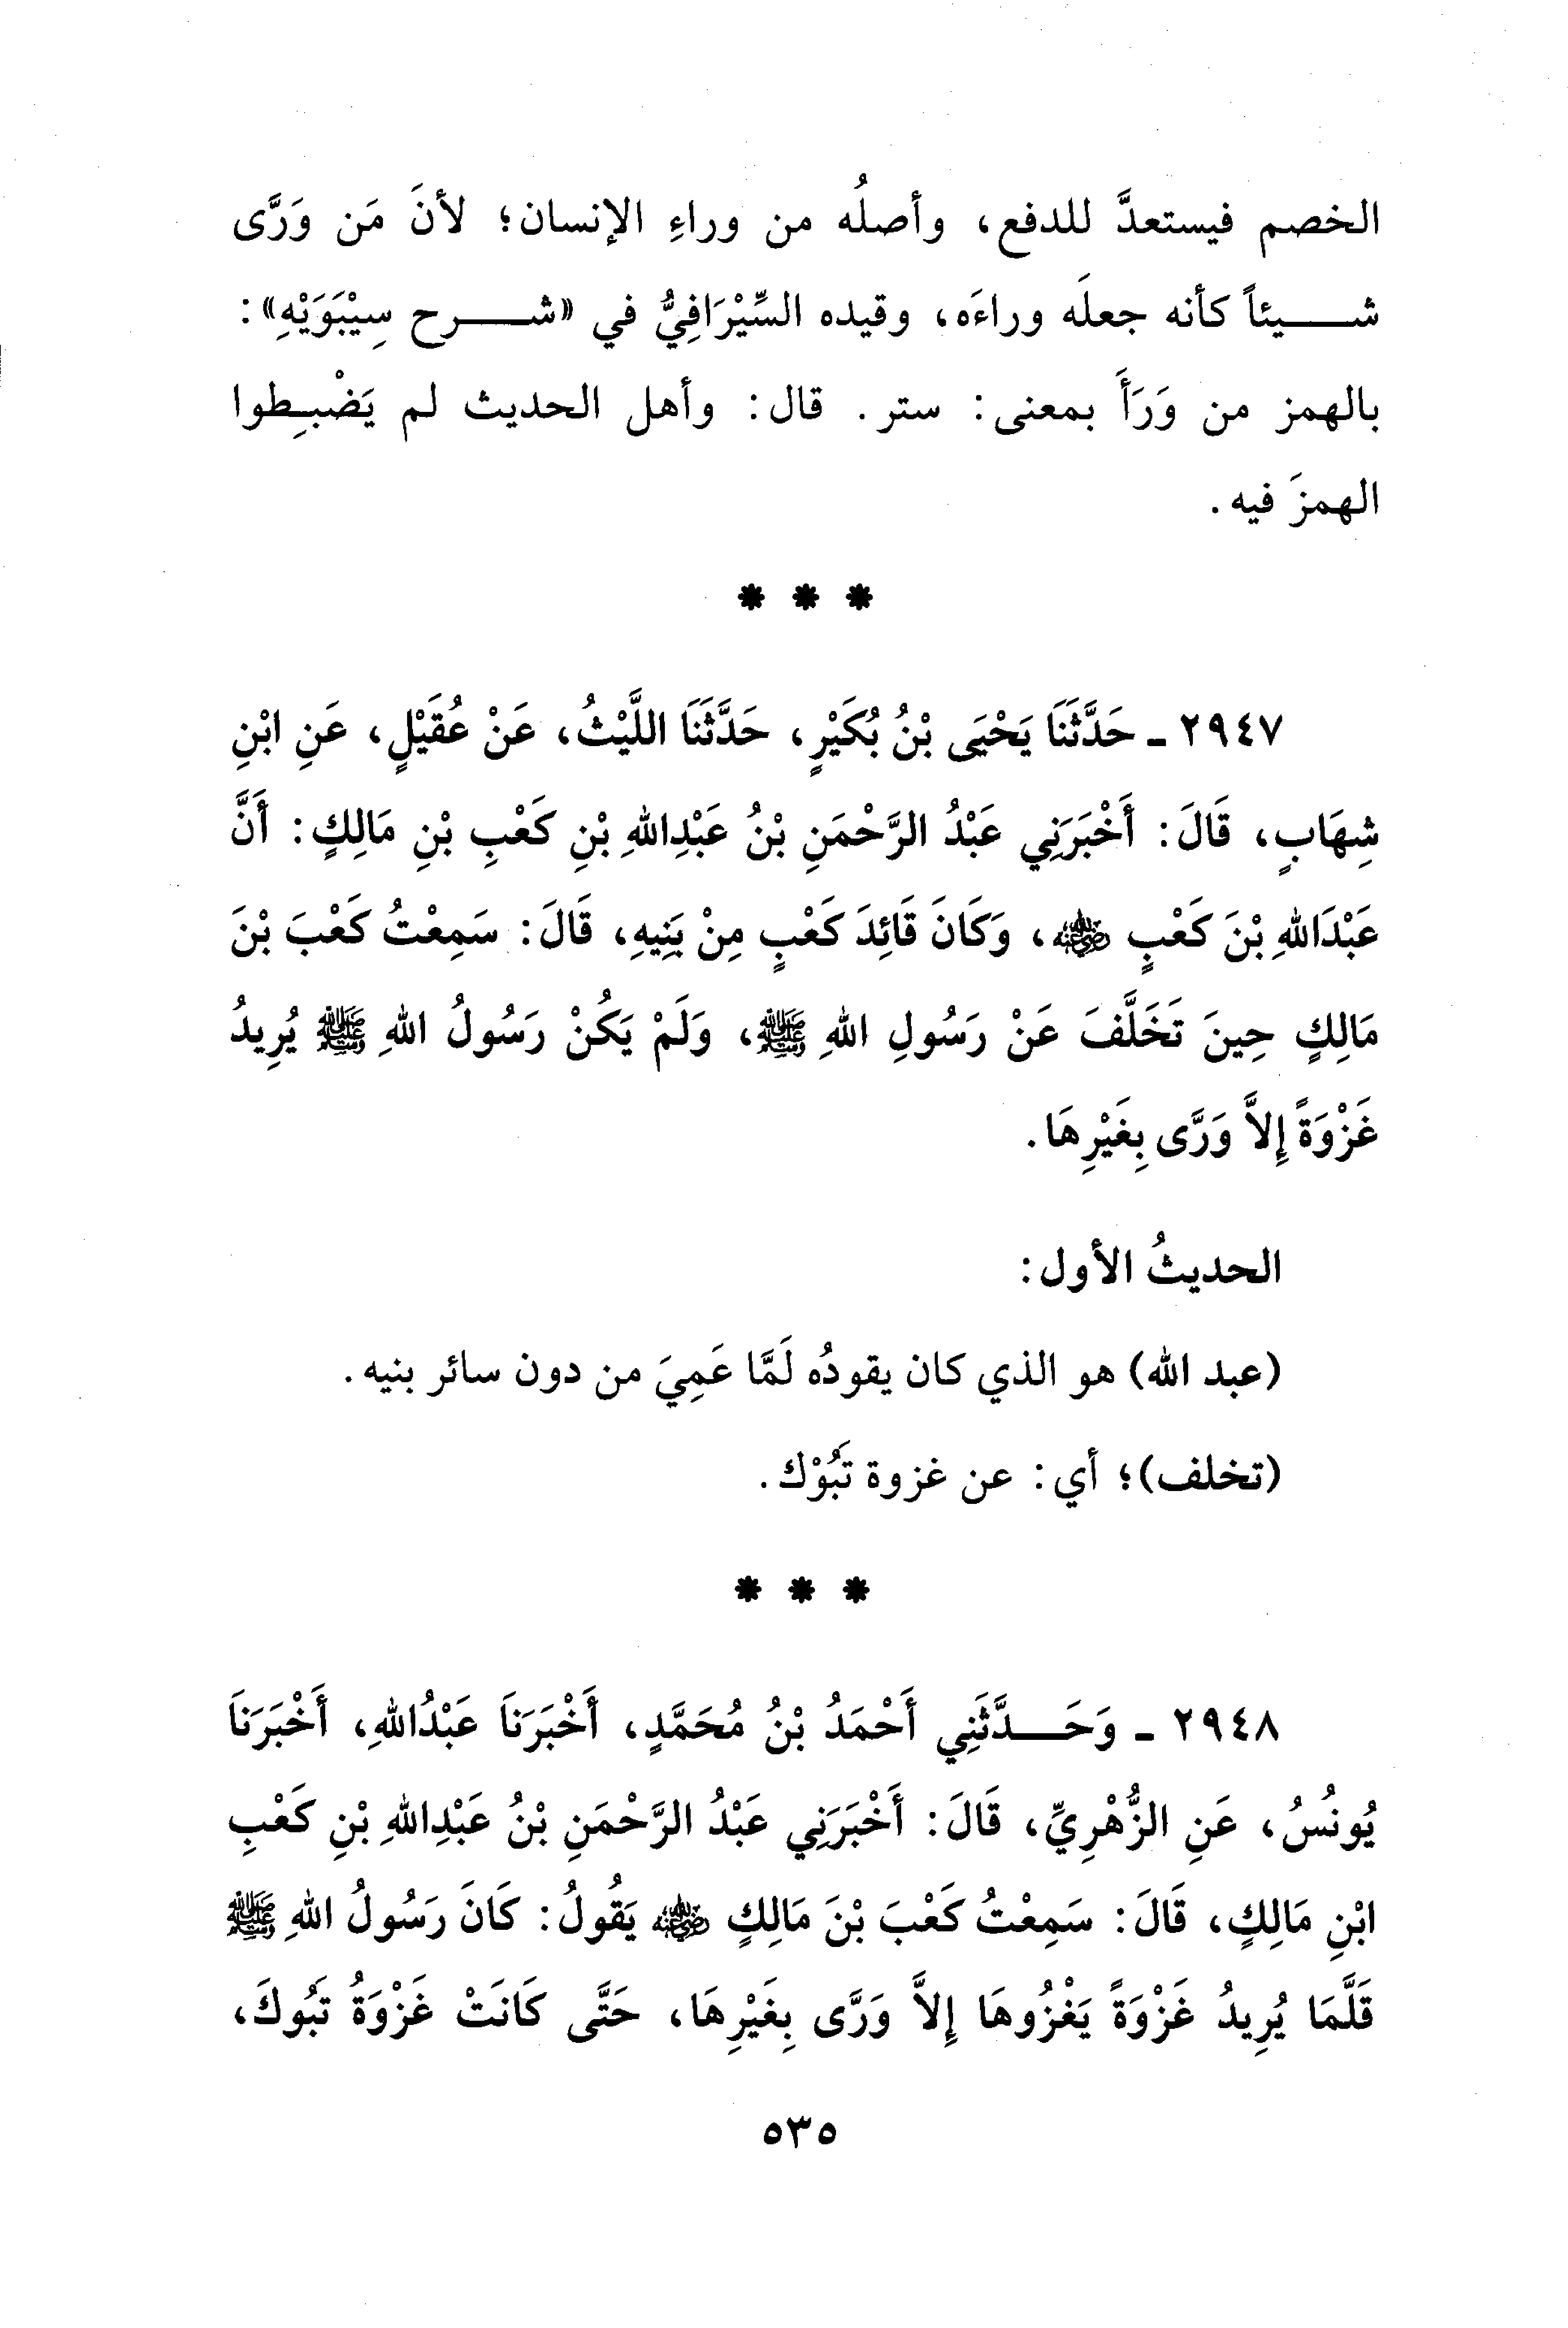 الخصم فيستعدَّ للدفع، وأصلُه من وراءِ الإنسان؛ لأنَ مَن وَرَّى
شـــيئاً كأنه جعلَه وراءَه، وقيده السِّيْرَافِيُّ في «شـــرح سِيْبَوَيْهِ»:
بالهمز من وَرَأَ بمعنى: ستر. قال: وأهل الحديث لم يَضْبِطوا
الهمزَ فيه.
* * *
٢٩٤٧ - حَدَّثَنَا يَحْيَى بْنُ بُكَيْرٍ، حَدَّثَنَا اللَّيْثُ، عَنْ عُقَيْلٍ، عَنِ ابْنِ
شِهَابٍ، قَالَ: أَخْبَرَنِي عَبْدُ الرَّحْمَنِ بْنُ عَبْدِاللهِ بْنِ كَعْبِ بْنِ مَالِكٍ: أَنَّ
عَبْدَاللهِ بْنَ كَعْبٍ ﵁، وَكَانَ قَائِدَ كَعْبٍ مِنْ بَنِيهِ، قَالَ: سَمِعْتُ كَعْبَ بْنَ
مَالِكٍ حِينَ تَخَلَّفَ عَنْ رَسُولِ اللهِ ﷺ، وَلَمْ يَكُنْ رَسُولُ اللهِ ﷺ يُرِيدُ
غَزْوَةً إِلاَّ وَرَّى بِغَيْرِهَا.
الحديثُ الأول:
(عبد الله) هو الذي كان يقودُه لَمَّا عَمِيَ من دون سائر بنيه.
(تخلف)؛ أي: عن غزوة تَبُوْك.
* * *
٢٩٤٨ - وَحَـــدَّثَنِي أَحْمَدُ بْنُ مُحَمَّدٍ، أَخْبَرَنَا عَبْدُاللهِ، أَخْبَرَنَا
يُونُسُ، عَنِ الزُّهْرِيِّ، قَالَ: أَخْبَرَنِي عَبْدُ الرَّحْمَنِ بْنُ عَبْدِاللهِ بْنِ كَعْبِ
ابْنِ مَالِكٍ، قَالَ: سَمِعْتُ كَعْبَ بْنَ مَالِكٍ ﵁ يَقُولُ: كَانَ رَسُولُ اللهِ ﷺ
قَلَّمَا يُرِيدُ غَزْوَةً يَغْزُوهَا إِلاَّ وَرَّى بِغَيْرِهَا، حَتَّى كَانَتْ غَزْوَةُ تَبُوكَ،
٥٣٥